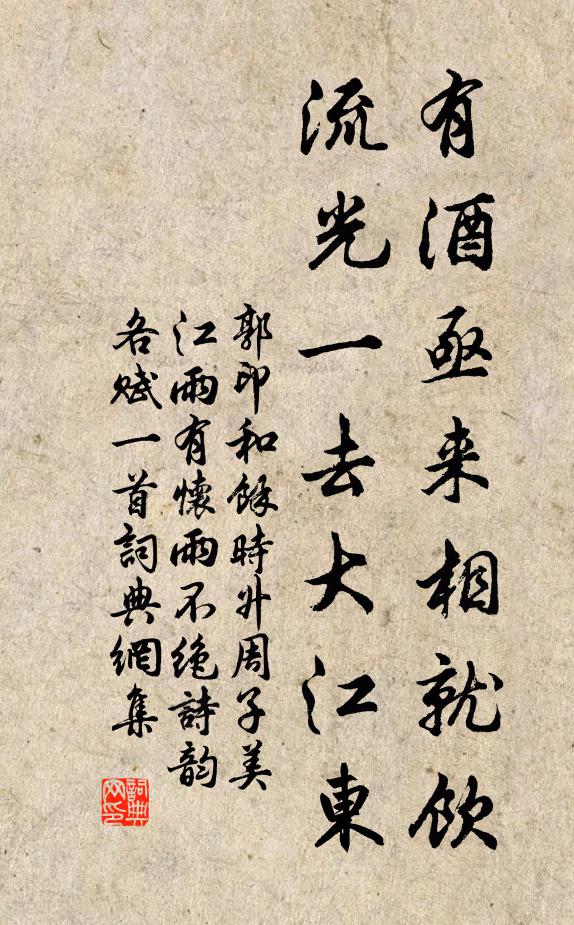 有酒亟来相就飲
流光一去大江東
郭印和餘時升周子美
江雨有懷雨不絶詩韵
各赋一首詞典網集
詞典網印